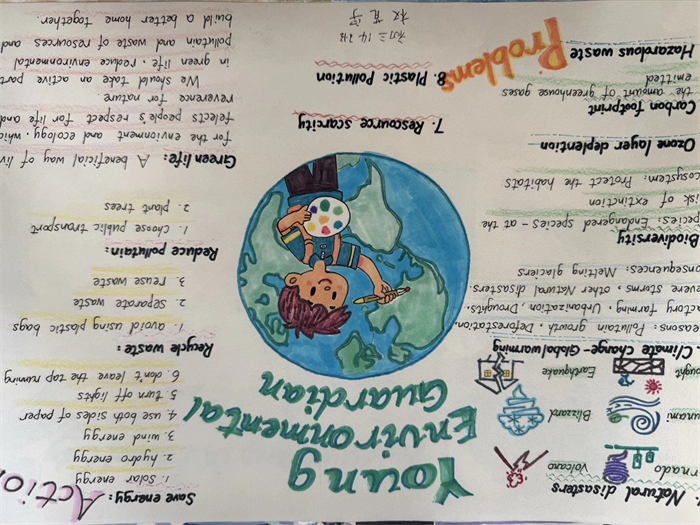 Natural disasters
rnado Volcano
unami Blizzard
ought Earthquake
Climate Change-Globalwarming
easons: Pollutain growth, Deforestation,
actory farming, Urbanization, Droughts,
evere storms, other Natural disasters
onsequences: Melting glaciers
Biodiversity
pecies: Endangered species - at the
isk of extinction
cosystem: Protect the habitats
Ozone layer deplention
Carbon footprint
the amount of greenhouse gases
emitted
Hazardous waste
Problems
Young
Environmental
Guardian
7. Resource scarcity
8. Plastic Pollution
初三14班
Action
Save energy:
1. Solar energy
2. hydro energy
3. wind energy
4. use both sides of paper
5. turn off lights
6. don't leave the tap running
Recycle waste:
1. avoid using plastic bags
2. separate waste
3. reuse waste
Reduce pollutain:
1. choose public transport
2. plant trees
Green life: A beneficial way of liv
for the environment and ecology and, which
felects people's respect for life and
reverence for nature.
We should take an active part
in green life, reduce environmental
pollutain and waste of resources and
build a better home together.